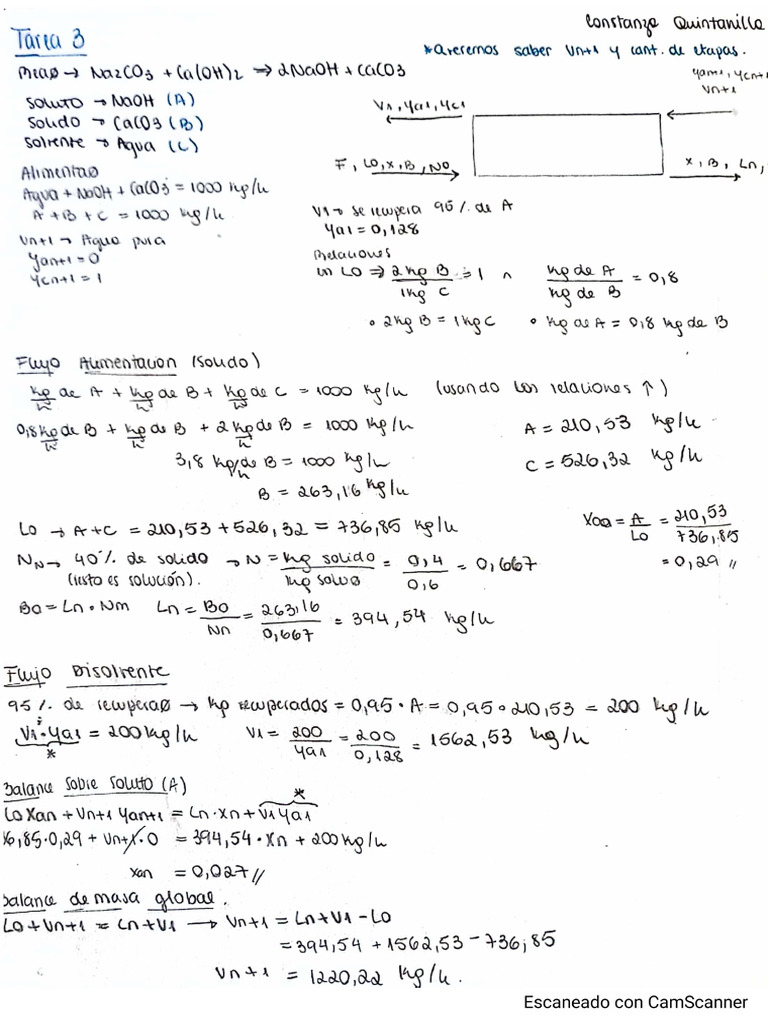 Constanza Quintanilla
Tarea 3
*Queremos saber Vn+1 y cant. de etapas.
Na2CO3 + Ca(OH)2 → 2NaOH + CaCO3
Soluto → NaOH (A)
Solido → CaCO3 (B)
Solvente → Agua (C)
V1, ya1, yc1
yan+1, ycn+1
Vn+1
F, Lo, x, B, No
x, B, Ln,
Agua + NaOH + CaCO3 = 1000 kg/h
A + B + C = 1000 kg/h
Vn+1 → Agua pura
yan+1 = 0
ycn+1 = 1
V1 → se recupera 95 % de A
ya1 = 0,128
Relaciones
en Lo ⇒ 2 kg B / 1 kg C = 1 ^ kg de A / kg de B = 0,8
• 2 kg B = 1 kg C • kg de A = 0,8 kg de B
Flujo Alimentación (solido)
kg/h de A + kg/h de B + kg/h de C = 1000 kg/h (usando las relaciones ↑)
0,8 kg/h de B + kg/h de B + 2 kg/h de B = 1000 kg/h
3,8 kg/h de B = 1000 kg/h
B = 263,16 kg/h
A = 210,53 kg/h
C = 526,32 kg/h
Lo → A + C = 210,53 + 526,32 = 736,85 kg/h
Xoa = A / Lo = 210,53 / 736,85
= 0,29 //
NN → 40 % de solido → N = kg solido / kg soluø = 0,4 / 0,6 = 0,667
(resto es solución).
Bo = Ln • Nm Ln = Bo / Nn = 263,16 / 0,667 = 394,54 kg/h
Flujo Disolvente
95 % de recuperaø → kg recuperados = 0,95 • A = 0,95 • 210,53 = 200 kg/h
V1 • ya1 = 200 kg/h V1 = 200 / ya1 = 200 / 0,128 = 1562,53 kg/h
*
Balance sobre soluto (A)
*
Lo Xan + Vn+1 yan+1 = Ln • xn + V1 ya1
36,85 • 0,29 + Vn+1 • 0 = 394,54 • Xn + 200 kg/h
xan = 0,027 //
Balance de masa global.
Lo + Vn+1 = Ln + V1 → Vn+1 = Ln + V1 - Lo
= 394,54 + 1562,53 - 736,85
Vn+1 = 1220,22 kg/h.
Escaneado con CamScanner